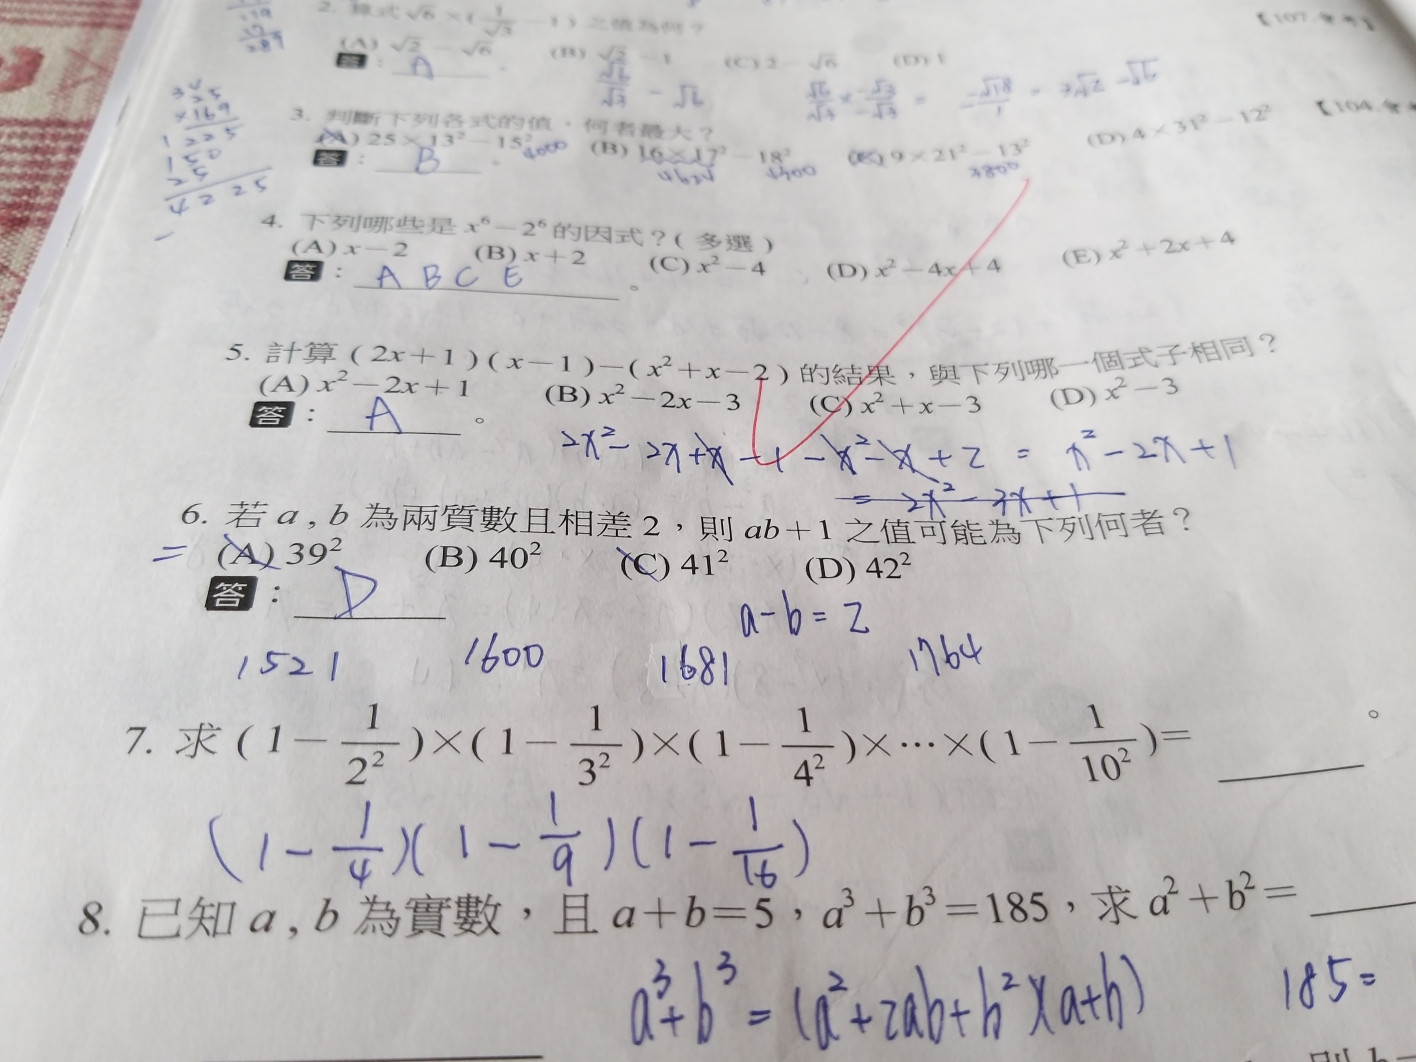 2. 算式√6×(1/√3－1)之值為何？
【107.會考】
(A) √2－√6 (B) √2－1 (C) 2－√6 (D) 1
答： A 。
3. 判斷下列各式的值，何者最大？
【104.會考
(A) 25×13²－15² (B) 16×17²－18² (C) 9×21²－13² (D) 4×31²－12²
答： B 。
4225
4. 下列哪些是 x⁶－2⁶ 的因式？(多選)
(A) x－2 (B) x＋2 (C) x²－4 (D) x²－4x＋4 (E) x²＋2x＋4
答： A B C E 。
5. 計算 (2x＋1)(x－1)－(x²＋x－2) 的結果，與下列哪一個式子相同？
(A) x²－2x＋1 (B) x²－2x－3 (C) x²＋x－3 (D) x²－3
答： A 。
2x²－2x＋x－1－x²－x＋2 = x²－2x＋1
6. 若 a , b 為兩質數且相差 2，則 ab＋1 之值可能為下列何者？
= (A) 39² (B) 40² (C) 41² (D) 42²
答： D
a－b = 2
1521 1600 1681 1764
7. 求 (1－1/2²)×(1－1/3²)×(1－1/4²)×…×(1－1/10²)= 。
(1－1/4)(1－1/9)(1－1/16)
8. 已知 a , b 為實數，且 a＋b＝5，a³＋b³＝185，求 a²＋b²＝
a³＋b³ = (a²＋2ab＋b²)(a＋b) 185=